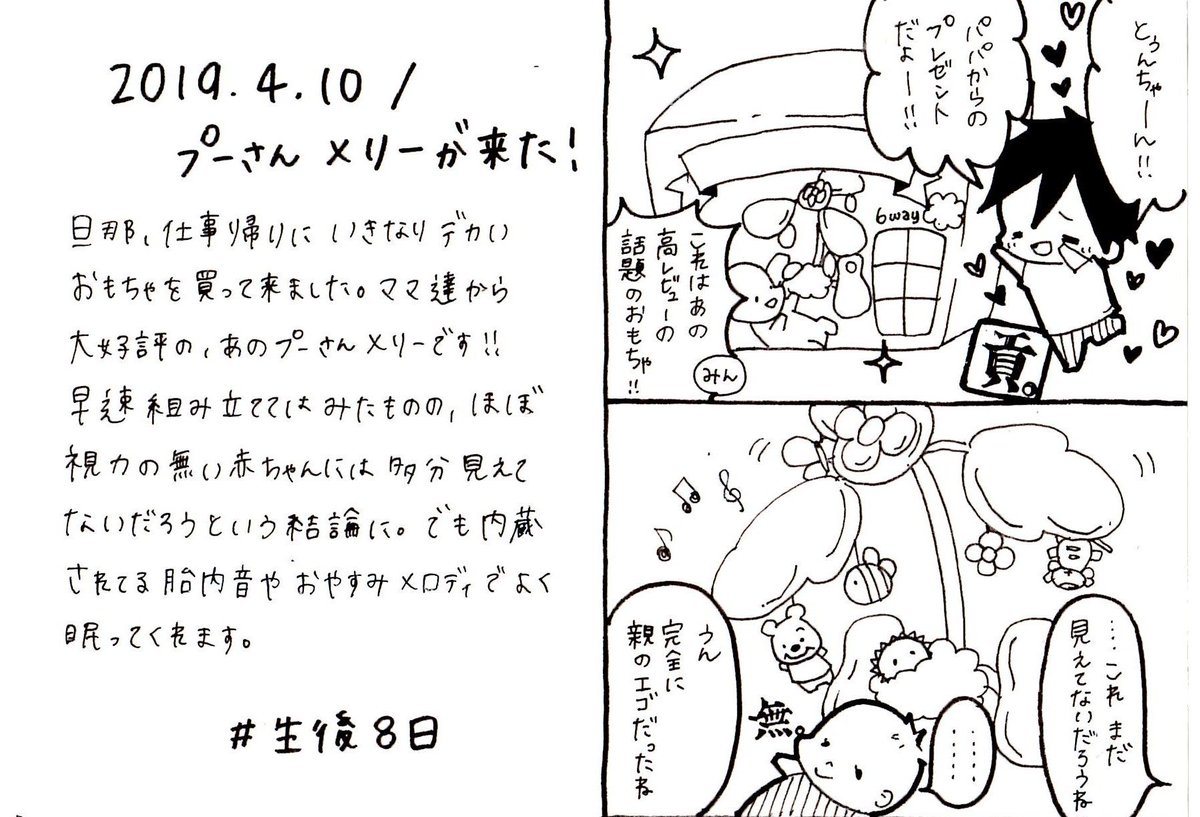 2019.4.10/
プーさんメリーが来た!
旦那、仕事帰りにいきなりデカい
おもちゃを買って来ました。ママ達から
大好評の、あのプーさんメリーです!!
早速組み立ててはみたものの、ほぼ
視力の無い赤ちゃんには多分見えて
ないだろうという結論に。でも内蔵
されてる胎内音やおやすみメロディでよく
眠ってくれます。
#生後8日
とぅんちゃーん!!
パパからの
プレゼント
だよー!!
6way
貢。
これはあの
高レビューの
話題のおもちゃ!!
みん
……これ まだ
見えてないだろうね
………
無。
うん
完全に
親のエゴだったね